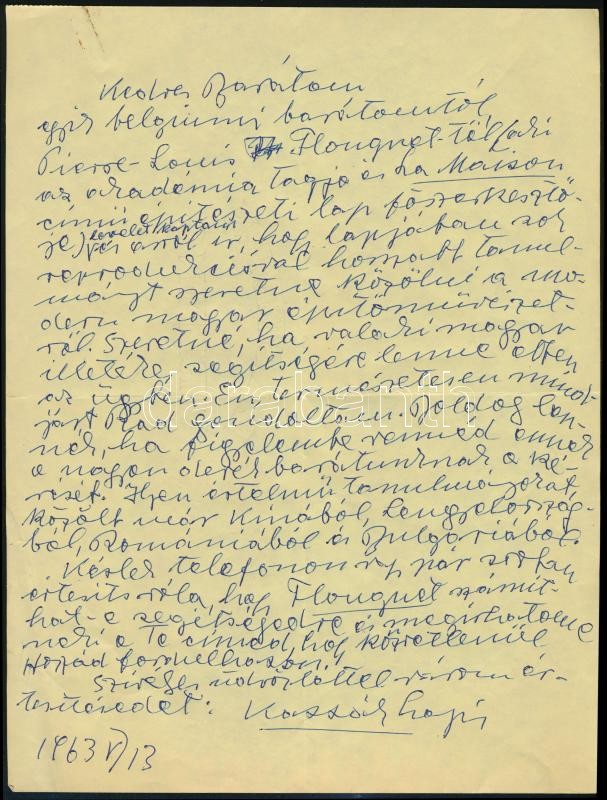 Kedves Barátom
egyik belgiumi barátomtól,
Pierre-Louis Flouquet-től (aki
az akadémia tagja és La Maison
című építészeti lap főszerkesztő-
je) levelet kaptam
arról ír, hogy lapjában sok
reprodukcióval hosszabb tanul-
mányt szeretne közölni a mo-
dern magyar építőművészet-
ről. Szeretné, ha valaki magyar
illetékes segítségére lenne ebben
az ügyben. Én természetesen mind-
járt Rád gondoltam. Boldog len-
nék, ha figyelembe vennéd ennek
a nagyon derék barátunknak a ké-
rését. Ilyen értelmű tanulmányokat
közölt már Kínából, Lengyelország-
ból, Romániából és Bulgáriából.
Kérlek telefonon vagy pár sorban
értesíts róla, hogy Flouquet számít-
hat-e segítségedre és megírhatom-e
neki a Te címed, hogy közvetlenül
Hozzád fordulhasson.
Szíves üdvözlettel várom ér-
tesítésedet:
Kassák Lajos
1963 V/13
darabanth